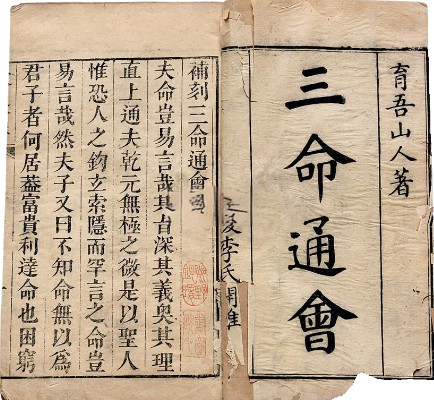 育吾山人著
三命通會
李氏
補刻三命通會
夫命豈易言哉其旨深其義奥其理
直上通夫乾元無極之微是以聖人
惟恐人之鈎玄索隱而罕言之命豈
易言哉然夫子又曰不知命無以爲
君子者何居葢富貴利達命也困窮